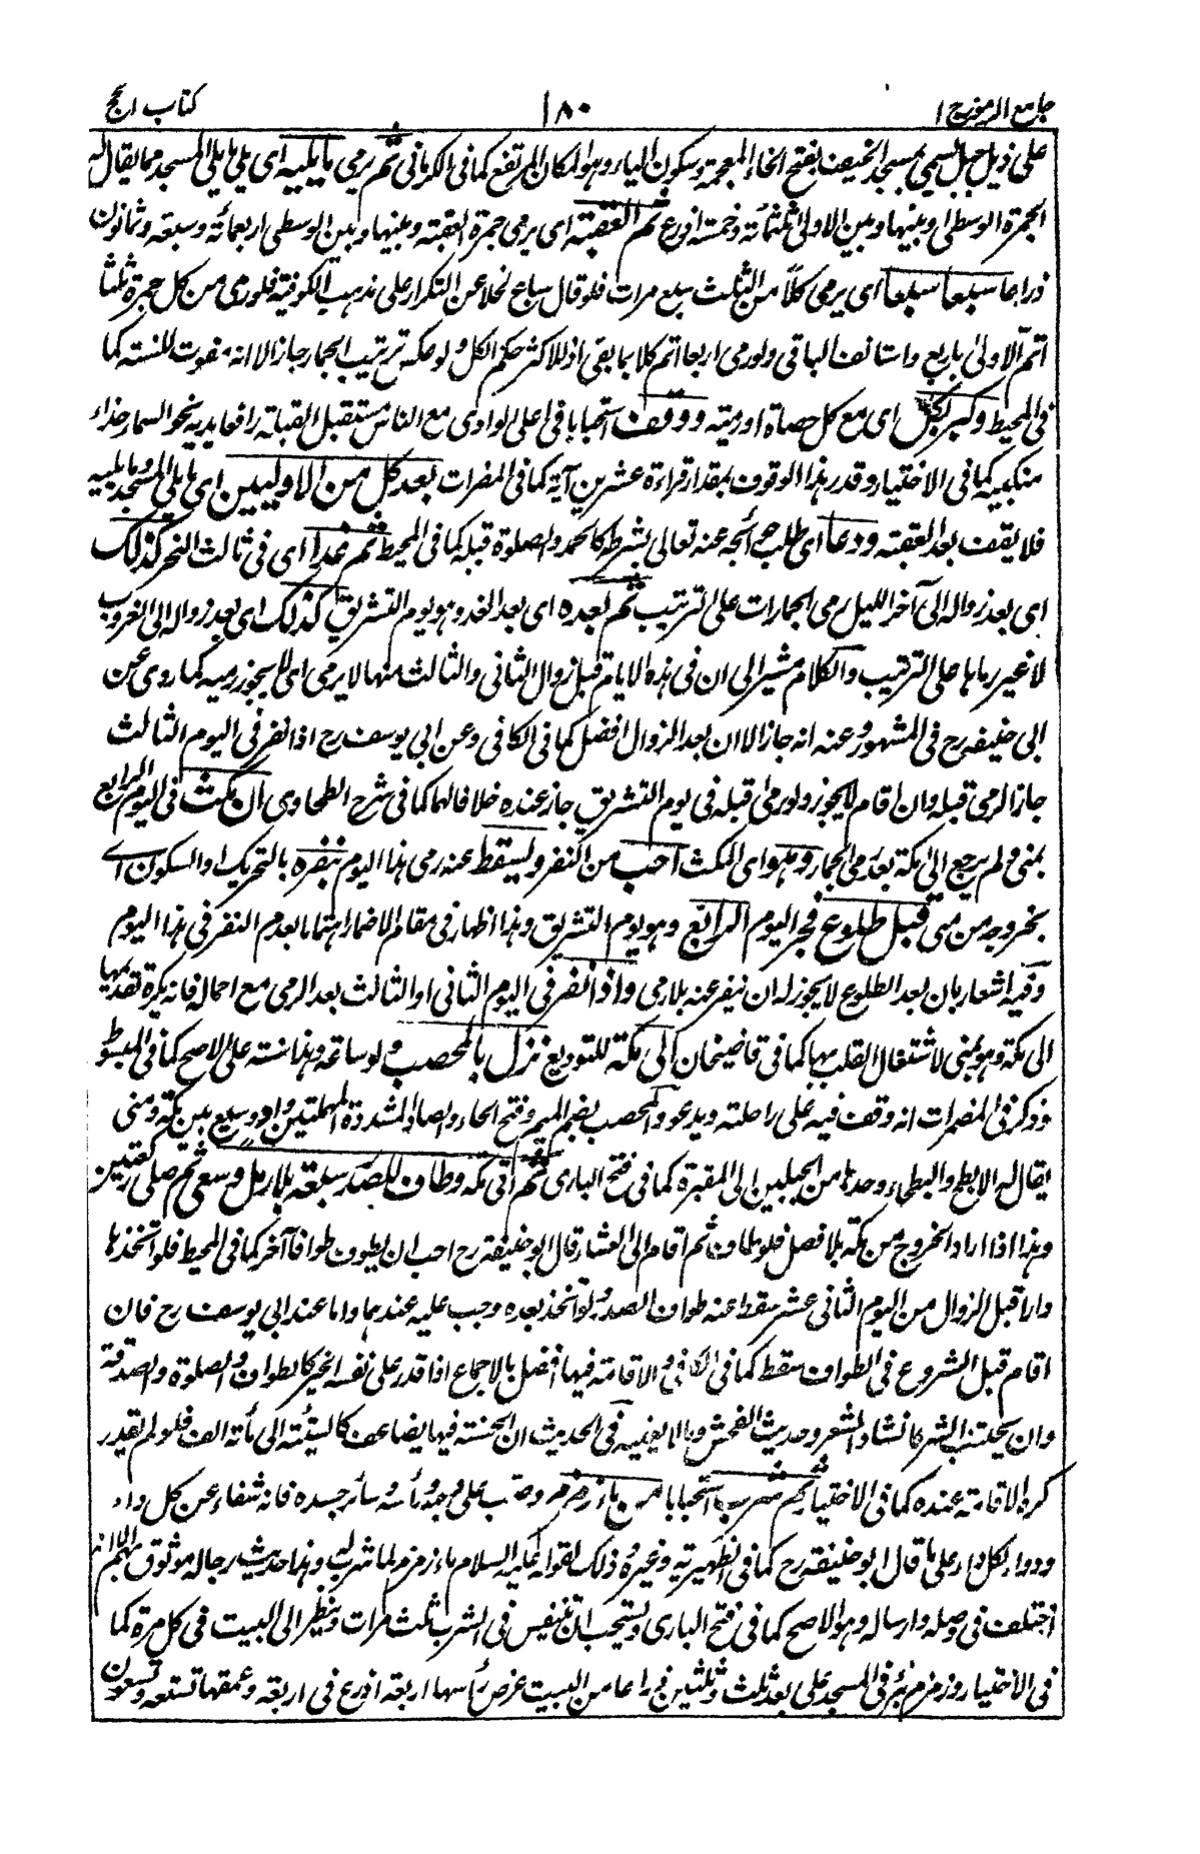 جامع الرموز ج ١
١٨٠
كتاب الحج
على ذيل جبل يسمى بمسجد الخيف بفتح الخاء المعجمة وسكون الياء وهو المكان المرتفع كما فى الكرمانى ثم يرمى ما يليه اى يلى ما يلى المسجد مما يقال له
الجمرة الوسطى وبينها وبين الاولى ثلثمائة وخمسة اذرع ثم العقبة اى يرمى جمرة العقبة وبينها وبين الوسطى اربعمائة وسبعة وثمانون
ذراعا سبعا سبعا اى يرمى كلا من الثلث سبع مرات فلو قال سباع لخلا عن التكرار على مذهب الكوفية فلو رمى من كل جمرة ثلثا
اتم الاولى باربع واستانف الباقى ولو رمى اربعا اتم كلا بما بقى اذ للاكثر حكم الكل ولو عكس ترتيب الجمار جاز الا انه مفوت للسنة كما
فى المحيط وكبر لكل اى مع كل حصاة او رمية ووقف استحبابا فى اعلى الوادى مع الناس مستقبل القبلة رافعا يديه نحو السماء حذاء
منكبيه كما فى الاختيار وقدر هذا الوقوف بمقدار قراءة عشرين آية كما فى المضمرات بعد كل من الاوليين اى ما يلى المسجد وما يليه
فلا يقف بعد العقبة ودعا اى طلب حوائجه عنه تعالى بشرطه كالحمد والصلوة قبله كما فى المحيط ثم غدا اى فى ثالث النحر كذلك
اى بعد زواله الى آخر الليل رمى الجمارات على ترتيب ثم بعده اى بعد الغد وهو يوم التشريق كذلك اى بعد زواله الى الغروب
لا غير رماها على الترتيب والكلام مشير الى ان فى هذه الايام قبل زوال الثانى والثالث منها لا يرمى اى لا يجوز رميه كما روى عن
ابى حنيفه رح فى المشهور وعنه انه جاز الا ان بعد الزوال افضل كما فى الكافى وعن ابى يوسف رح اذا نفر فى اليوم الثالث
جاز الرمى قبله وان اقام لا يجوز ولو رمى قبله فى يوم التشريق جاز عنده خلافا لهما كما فى شرح الطحاوى ان مكث فى اليوم الرابع
بمنى ولم يرجع الى مكة بعد رمى الجمار وهو اى المكث احب من النفر ويسقط عنه رمى هذا اليوم بنفره بالتحريك او السكون اے
بخروجه من منى قبل طلوع فجر اليوم الرابع وهو يوم التشريق وهذا اظهار فى مقام الاضمار اهتماما بعدم النفر فى هذا اليوم
وفيه اشعار بان بعد الطلوع لا يجوز له ان ينفر عنه بلا رمى واذا نفر فى اليوم الثانى او الثالث بعد الرمى مع احماله فانه يكره تقديمها
الى مكة وهو بمنى لاشتغال القلب بها كما فى قاضيخان الى مكة للتوديع نزل بالمحصب ولو ساعة وهذا سنة على الاصح كما فى المبسوط
وذكر فى المضمرات انه وقف فيه على راحلته ويدعو والمحصب بضم الميم وفتح الحاء والصاد المشددة المهملتين واد وسيع بين مكة ومنى
يقال له الابطح والبطحاء وحدها من الجبلين الى المقبرة كما فى فتح البارى ثم اتى مكه وطاف للصدر سبعة بلا رمل وسعى ثم صلى ركعتين
وهذا اذا اراد الخروج من مكه بلا فصل فلو طاف ثم اقام الى العشاء قال ابو حنيفة رح احب ان يطوف طوافا آخر كما فى المحيط فلو اتخذها
دارا قبل الزوال من اليوم الثانى عشر سقط عنه طواف الصدر ولو اتخذ بعده وجب عليه عندهما واما عند ابى يوسف رح فان
اقام قبل الشروع فى الطواف سقط كما فى الكافى والاقامة فيها افضل بالاجماع اذا قدر على نفسه الخير كالطواف والصلوة والصدقة
وان يجتنب الشر كانشاد الشعر وحديث الفحش وما لا يعنيه فى الحديث ان الحسنة فيها يضاعف كالسيئة الى مأته الف فلو لم يقدر
كره الاقامة عنده كما فى الاختيار ثم شرب استحبابا من ماء زمزم وصب على وجهه ورأسه وسائر جسده فانه شفاء عن كل داء
ودواء لكل داء على ما قال ابو حنيفة رح كما فى الظهيرية وغيره وذلك لقوله عليه السلام ماء زمزم لما شرب له وهذا حديث رجاله موثوق بهم الا انه
اختلف فى وصله وارساله وهو الاصح كما فى فتح البارى ويستحب ان يتنفس فى الشرب ثلث مرات وينظر الى البيت فى كل مرة كما
فى الاختيار وزمزم بئر فى المسجد على بعد ثلث وثلثين ذراعا من البيت عرض رأسها اربعة اذرع فى اربعة وعمقها تسعة وتسعون